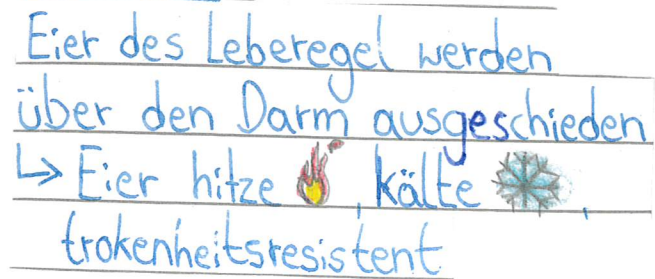 Eier des Leberegel werden
über den Darm ausgeschieden
↳ Eier hitze 🔥, kälte ❄,
trokenheitsresistent